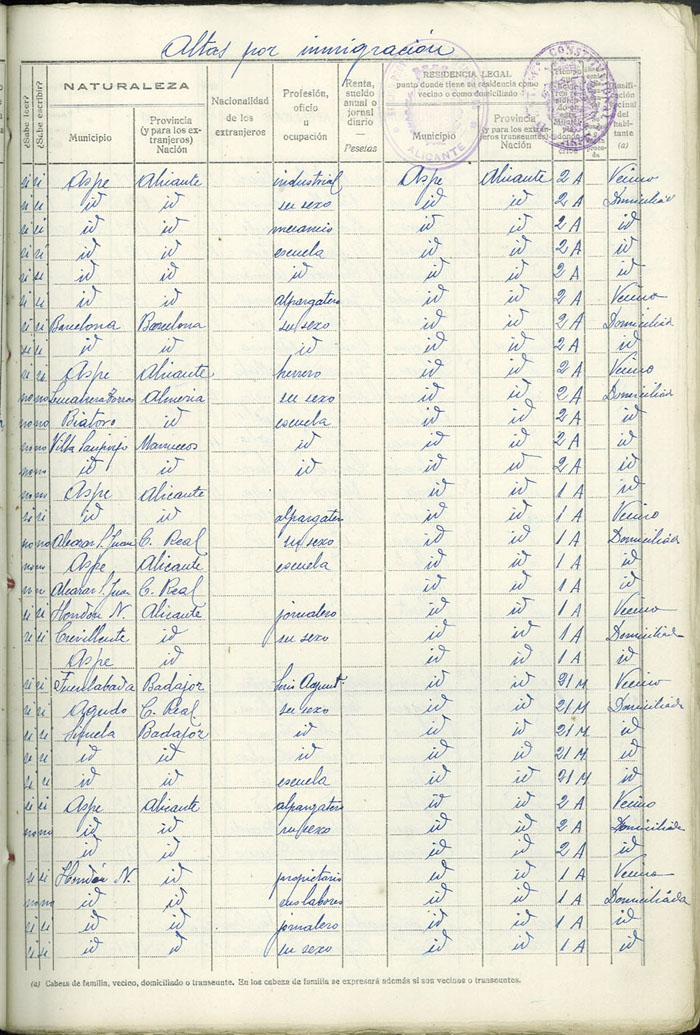 Altas por inmigración
¿Sabe leer? ¿Sabe escribir? NATURALEZA Municipio Provincia (y para los extranjeros) Nación Nacionalidad de los extranjeros Profesión, oficio u ocupación Renta, sueldo anual o jornal diario — Pesetas RESIDENCIA LEGAL punto donde tiene su residencia como vecino o como domiciliado Municipio Provincia (y para los extranjeros transeuntes) Nación (a)
ALICANTE
si si Aspe Alicante industrial Aspe Alicante 2 A Vecino
si si id id su sexo id id 2 A Domiciliad
si si id id mecanico id id 2 A id
si si id id escuela id id 2 A id
si si id id id id id 2 A id
si si id id alpargatero id id 2 A Vecino
si si Barcelona Barcelona su sexo id id 2 A Domiciliada
si si id id id id id 2 A id
si si Aspe Alicante herrero id id 2 A Vecino
no no Almeria su sexo id id 2 A Domiciliad
no no id escuela id id 2 A id
no no Villa Marruecos id id id 2 A id
no no id id id id id 2 A id
no no Aspe Alicante id id 1 A id
si si id id alpargater id id 1 A Vecino
no no Alcazar S. Juan C. Real su sexo id id 1 A Domiciliada
no no Aspe Alicante escuela id id 1 A id
Alcazar S. Juan C. Real id id 1 A id
si si Hondón N. Alicante jornalero id id 1 A Vecino
si si Crevillente id su sexo id id 1 A Domiciliad
Aspe id id id 1 A id
si si Fuenlabrada Badajoz id id 21 M Vecino
si si Agudo C. Real su sexo id id 21 M Domiciliada
si si Siruela Badajoz id id id 21 M id
si si id id id id id 21 M id
si si id id escuela id id 21 M id
si si Aspe Alicante alpargatero id id 2 A Vecino
no no id id su sexo id id 2 A Domiciliada
id id id id 2 A id
si si Hondón N. id propietario id id 1 A Vecino
no no id id sus labores id id 1 A Domiciliada
si si id id jornalero id id 1 A id
si si id id su sexo id id 1 A id
(a) Cabeza de familia, vecino, domiciliado o transeunte. En los cabeza de familia se expresará además si son vecinos o transeuntes.